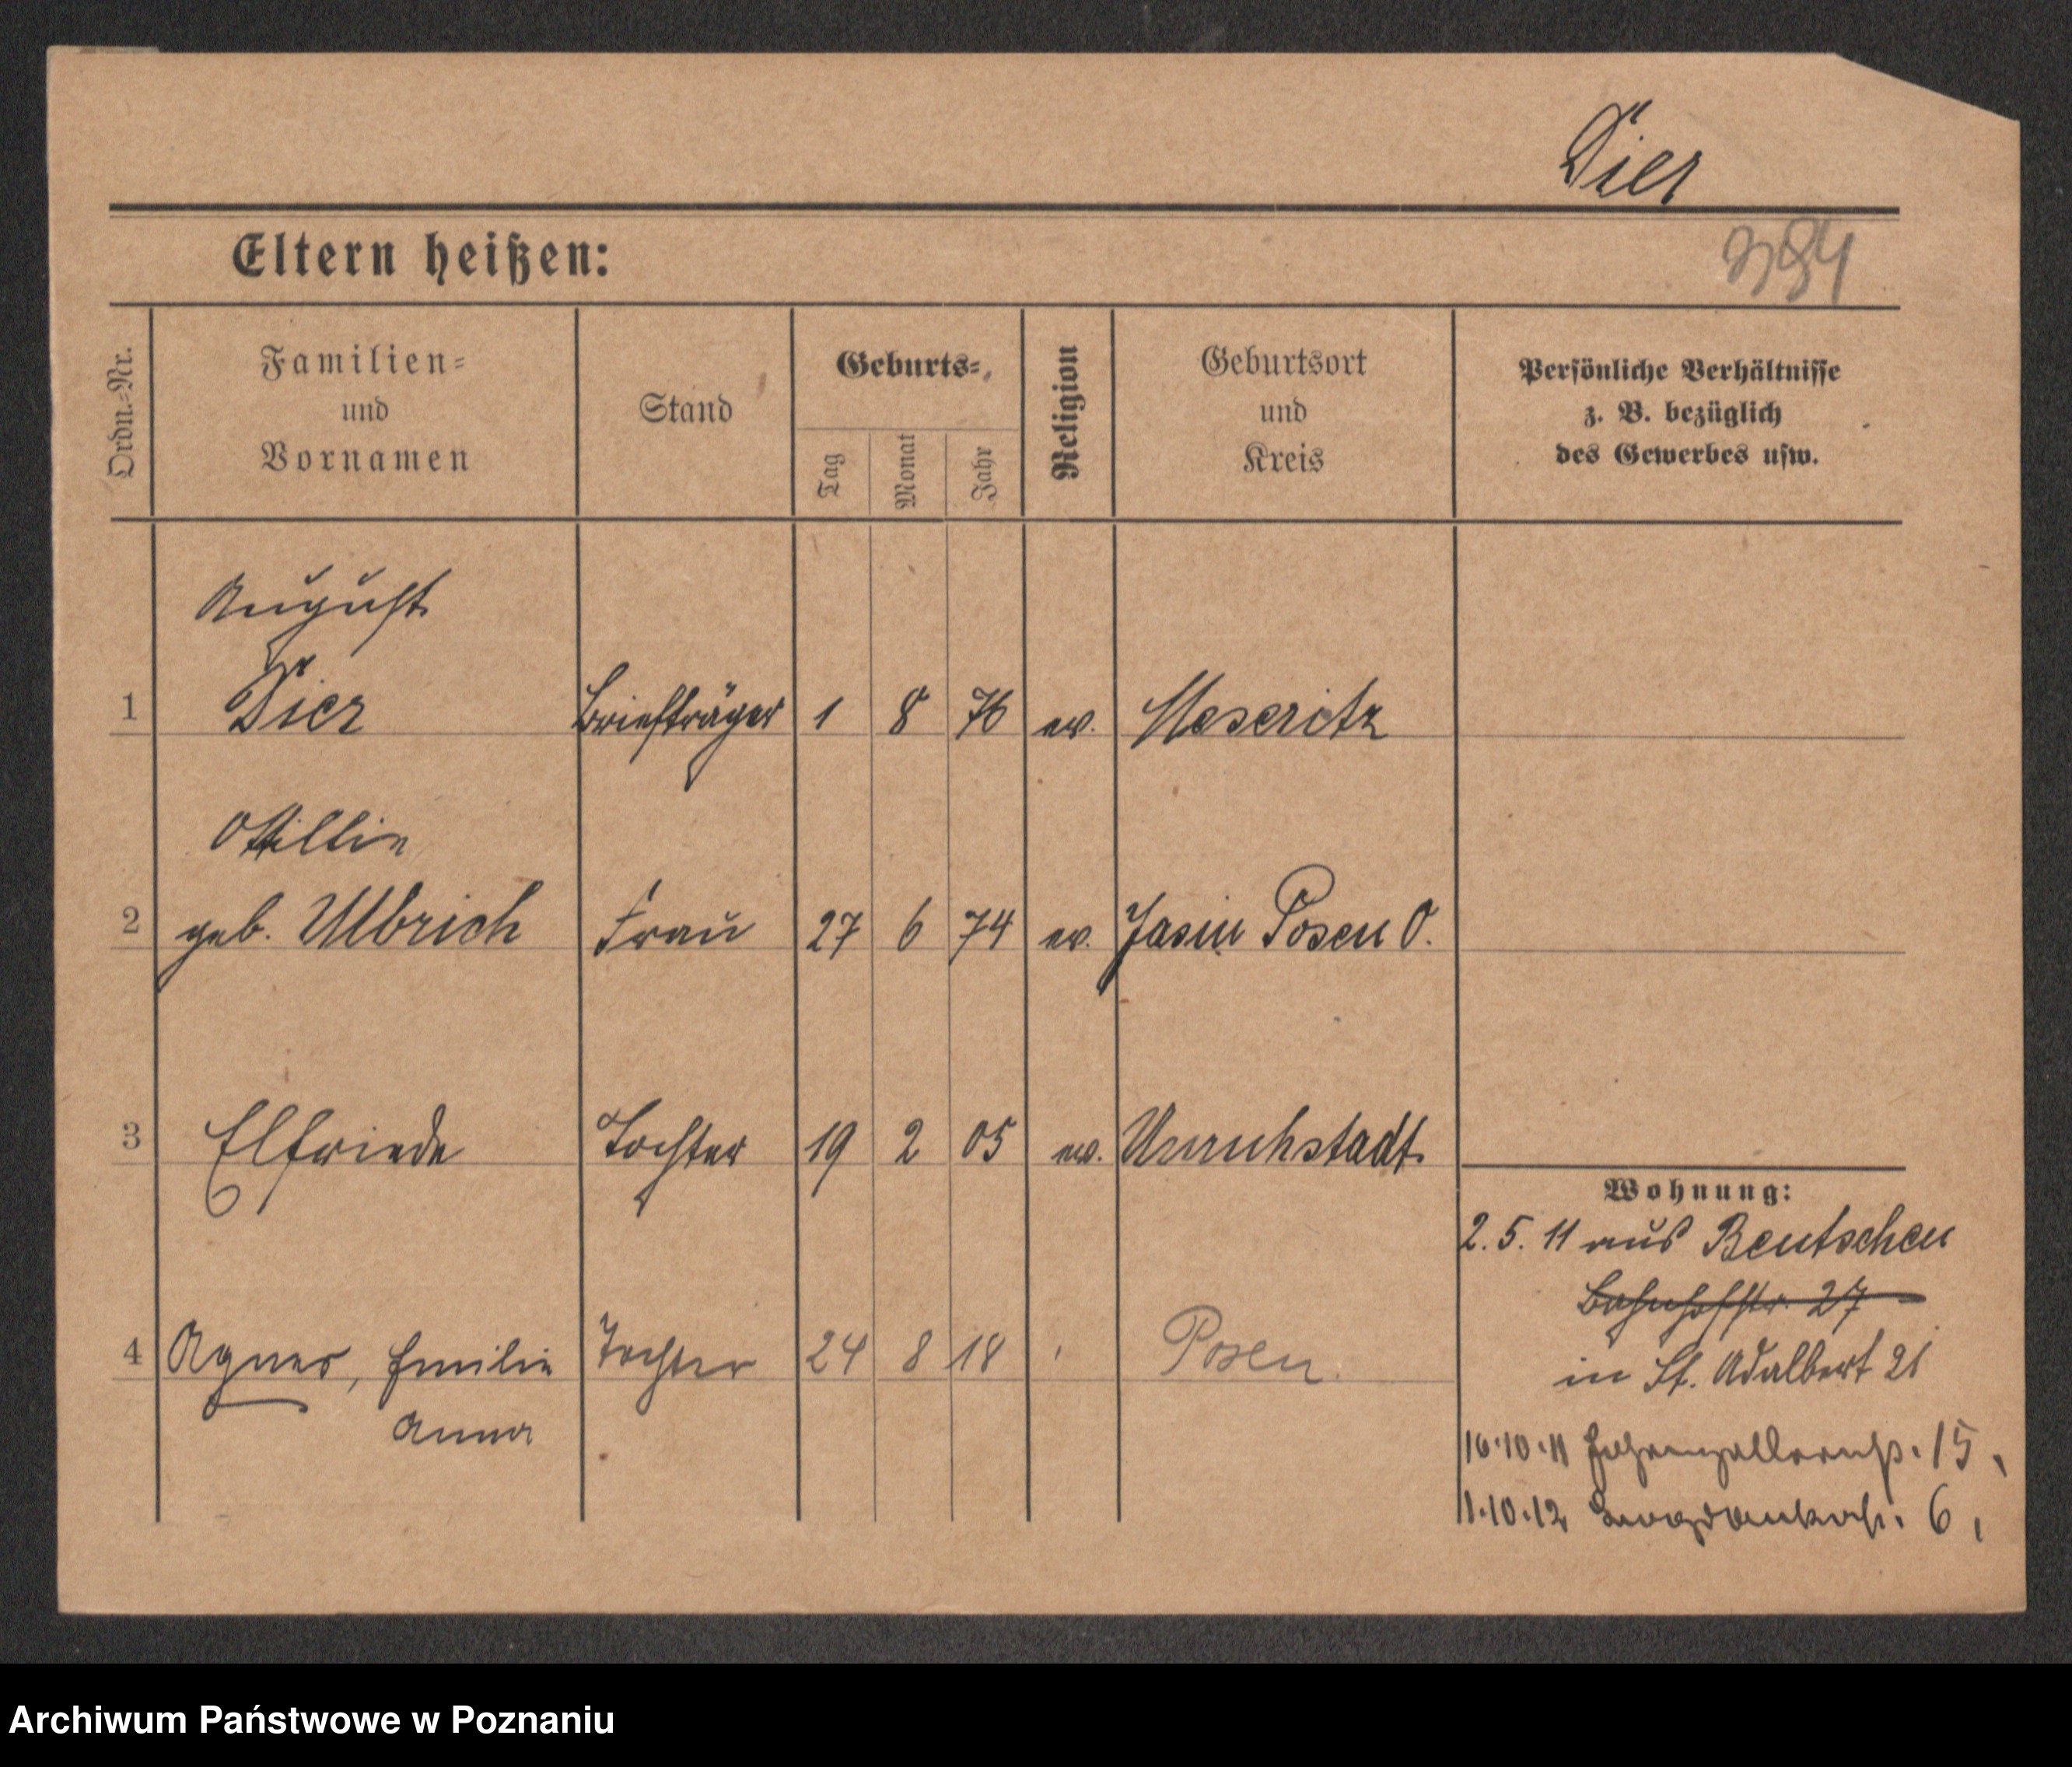 Dier
Eltern heißen:
384
Ordn.-Nr.
Familien-
und
Vornamen
Stand
Geburts-
Tag
Monat
Jahr
Religion
Geburtsort
und
Kreis
Persönliche Verhältnisse
z. B. bezüglich
des Gewerbes usw.
August
1 Dier Briefträger 1 8 76 ev. Meseritz
Ottilie
2 geb. Ulbrich Frau 27 6 74 ev. Jasin Posen O.
3 Elfriede Tochter 19 2 05 ev. Unruhstadt
Wohnung:
2. 5. 11 aus Bentschen
Bahnhofstr. 27
4 Agnes, Emilie Tochter 24 8 18 Posen
in St. Adalbert 21
Anna
16.10.11 Hohenzollernstr. 15,
1.10.12 6,
Archiwum Państwowe w Poznaniu